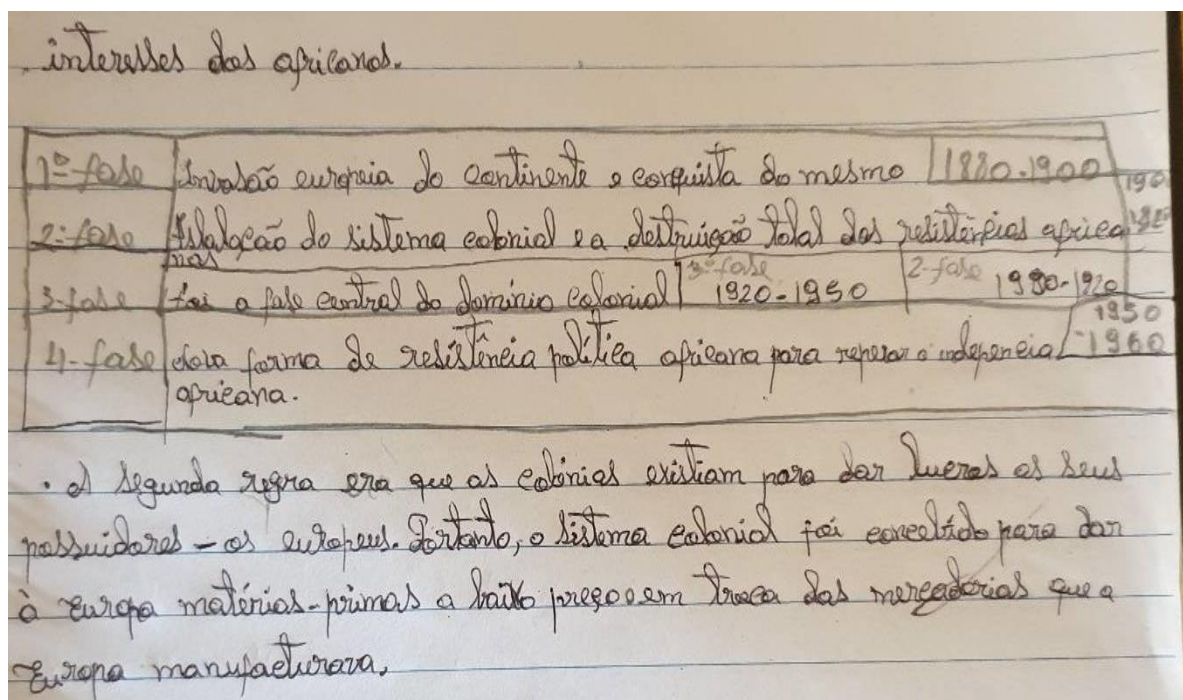 interesses dos africanos.
1ª-fase Invasão europeia do continente e conquista do mesmo 1880-1900
2-fase do sistema colonial e a destruição total das resistências africa
nas
3-fase foi a fase central do domínio colonial 3ª fase 1920-1950 2-fase 1980-1920
4-fase forma de resistência política africana para 1950
africana. -1960
. A segunda regra era que as colónias existiam para dar lucros os seus
possuidores - os europeus. Portanto, o sistema colonial foi concebido para dar
à Europa matérias-primas a baixo preço em troca das mercadorias que a
Europa manufacturava,